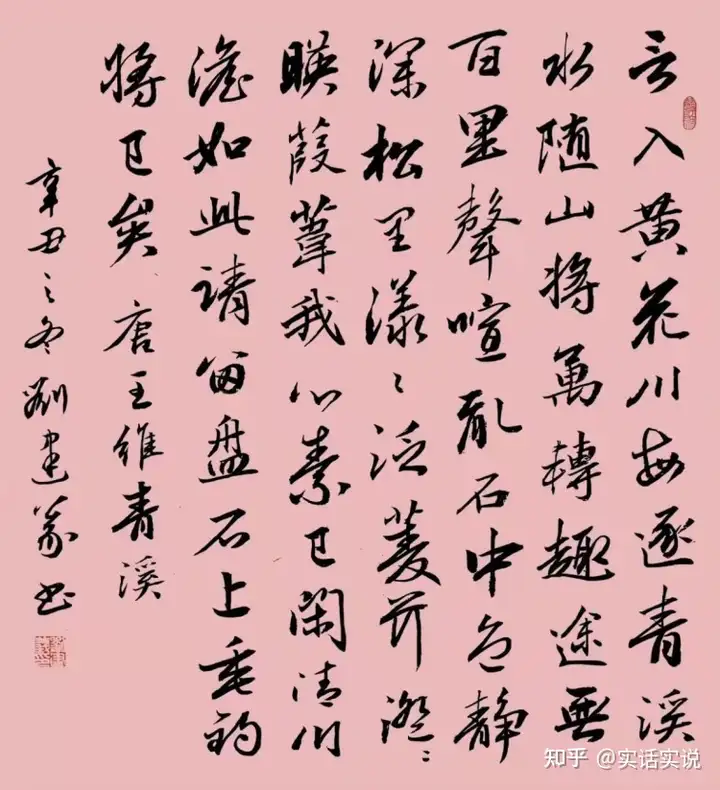 言入黄花川每逐青溪
水随山将萬轉趣途無
百里聲喧亂石中色静
深松里漾々泛菱荇澄々
暎葭葦我心素已閑清川
澹如此請留盘石上垂钓
将已矣唐王維青溪
辛丑之冬劉建书
知乎 @实话实说